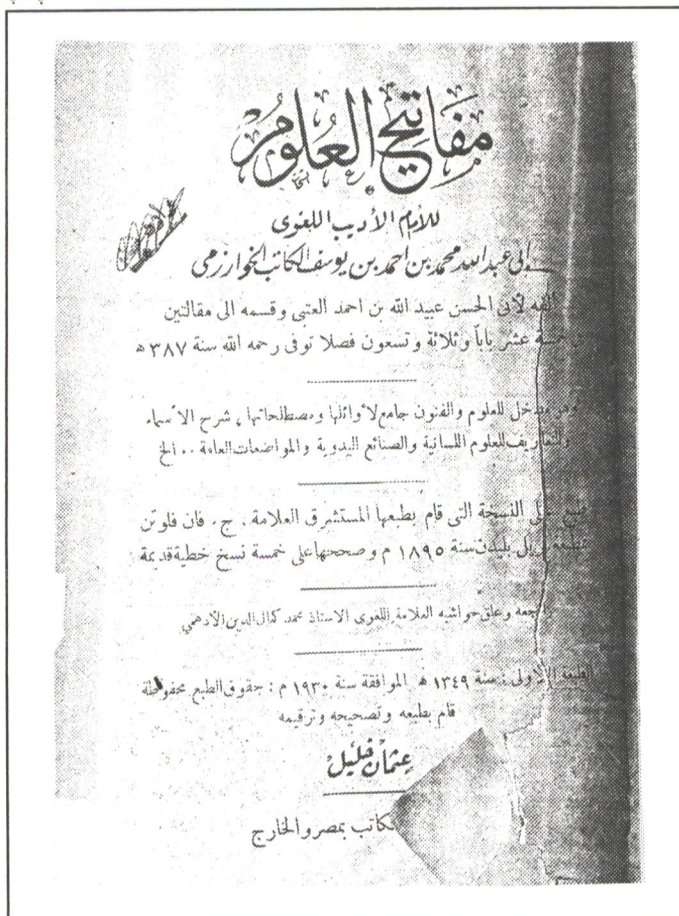 مفاتيح العلوم
للامام الأديب اللغوى
ابى عبد الله محمد بن احمد بن يوسف الكاتب الخوارزمى
ألفه لأبى الحسن عبيد الله بن احمد العتبى وقسمه الى مقالتين
عشر باباً وثلاثة وتسعون فصلا توفى رحمه الله سنة ٣٨٧ ه
وهو مدخل للعلوم والفنون جامع لأوائلها ومصطلحاتها ، شرح الاسماء
والتعاريف للعلوم اللسانية والصنائع اليدوية والمواضعات العامة . . الخ
على النسخة التى قام بطبعها المستشرق العلامة . ج . فان فلوتن
بريل بليدن سنة ١٨٩٥ م وصححها على خمسة نسخ خطية قديمة
راجعه وعلق حواشيه العلامة اللغوى الاستاذ محمد كمال الدين الأدهمي
الطبعة الأولى : سنة ١٣٤٩ ه الموافقة سنة ١٩٣٠ م : حقوق الطبع محفوظة
قام بطبعه وتصحيحه وترقيمه
عثمان خليل
بمصر والخارج